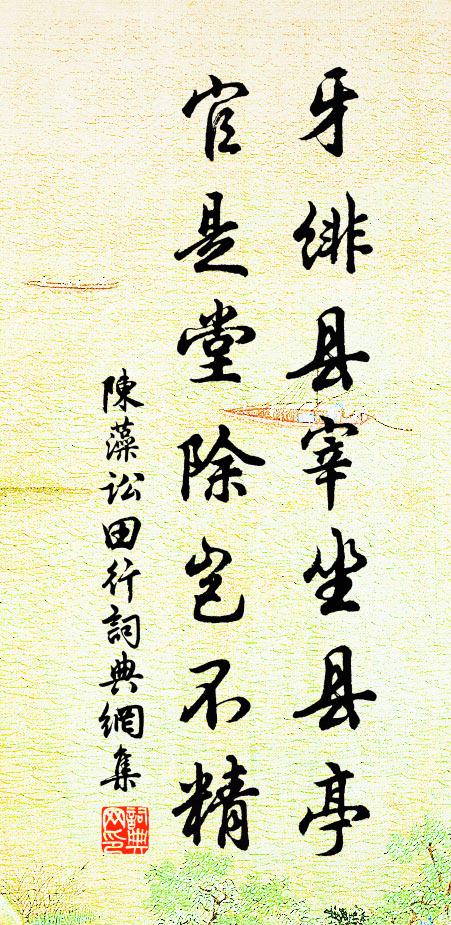 牙緋县宰坐县亭
官是堂除岂不精
陳藻訟田行詞典網集
詞典网印